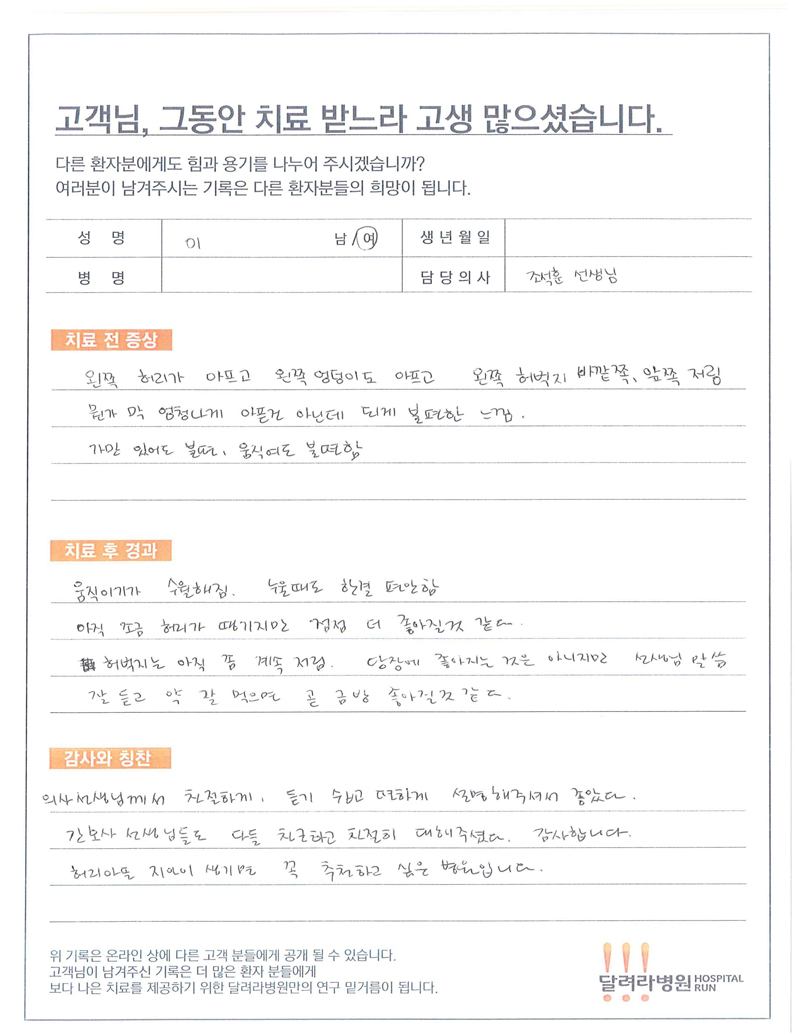 고객님, 그동안 치료 받느라 고생 많으셨습니다.
다른 환자분에게도 힘과 용기를 나누어 주시겠습니까?
여러분이 남겨주시는 기록은 다른 환자분들의 희망이 됩니다.
성 명 이 남/여 생년월일
병 명 담당의사 조석훈 선생님
치료 전 증상
왼쪽 허리가 아프고 왼쪽 엉덩이도 아프고 왼쪽 허벅지 바깥쪽, 앞쪽 저림
뭔가 막 엄청나게 아픈건 아닌데 되게 불편한 느낌.
가만 있어도 불편, 움직여도 불편함
치료 후 경과
움직이기가 수월해짐. 누울때도 한결 편안함
아직 조금 허리가 땡기지만 점점 더 좋아질것 같다.
허벅지는 아직 쫌 계속 저림. 당장에 좋아지는 것은 아니지만 선생님 말씀
잘 듣고 약 잘 먹으면 곧 금방 좋아질것 같다.
감사와 칭찬
의사선생님께서 친절하게, 듣기 쉽고 편하게 설명해주셔서 좋았다.
간호사 선생님들도 다들 친근하고 친절히 대해주셨다. 감사합니다.
허리아픈 지인이 생기면 꼭 추천하고 싶은 병원입니다.
위 기록은 온라인 상에 다른 고객 분들에게 공개 될 수 있습니다.
고객님이 남겨주신 기록은 더 많은 환자 분들에게
보다 나은 치료를 제공하기 위한 달려라병원만의 연구 밑거름이 됩니다.
달려라병원 HOSPITAL RUN